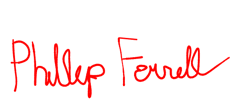 Phillip Forrell